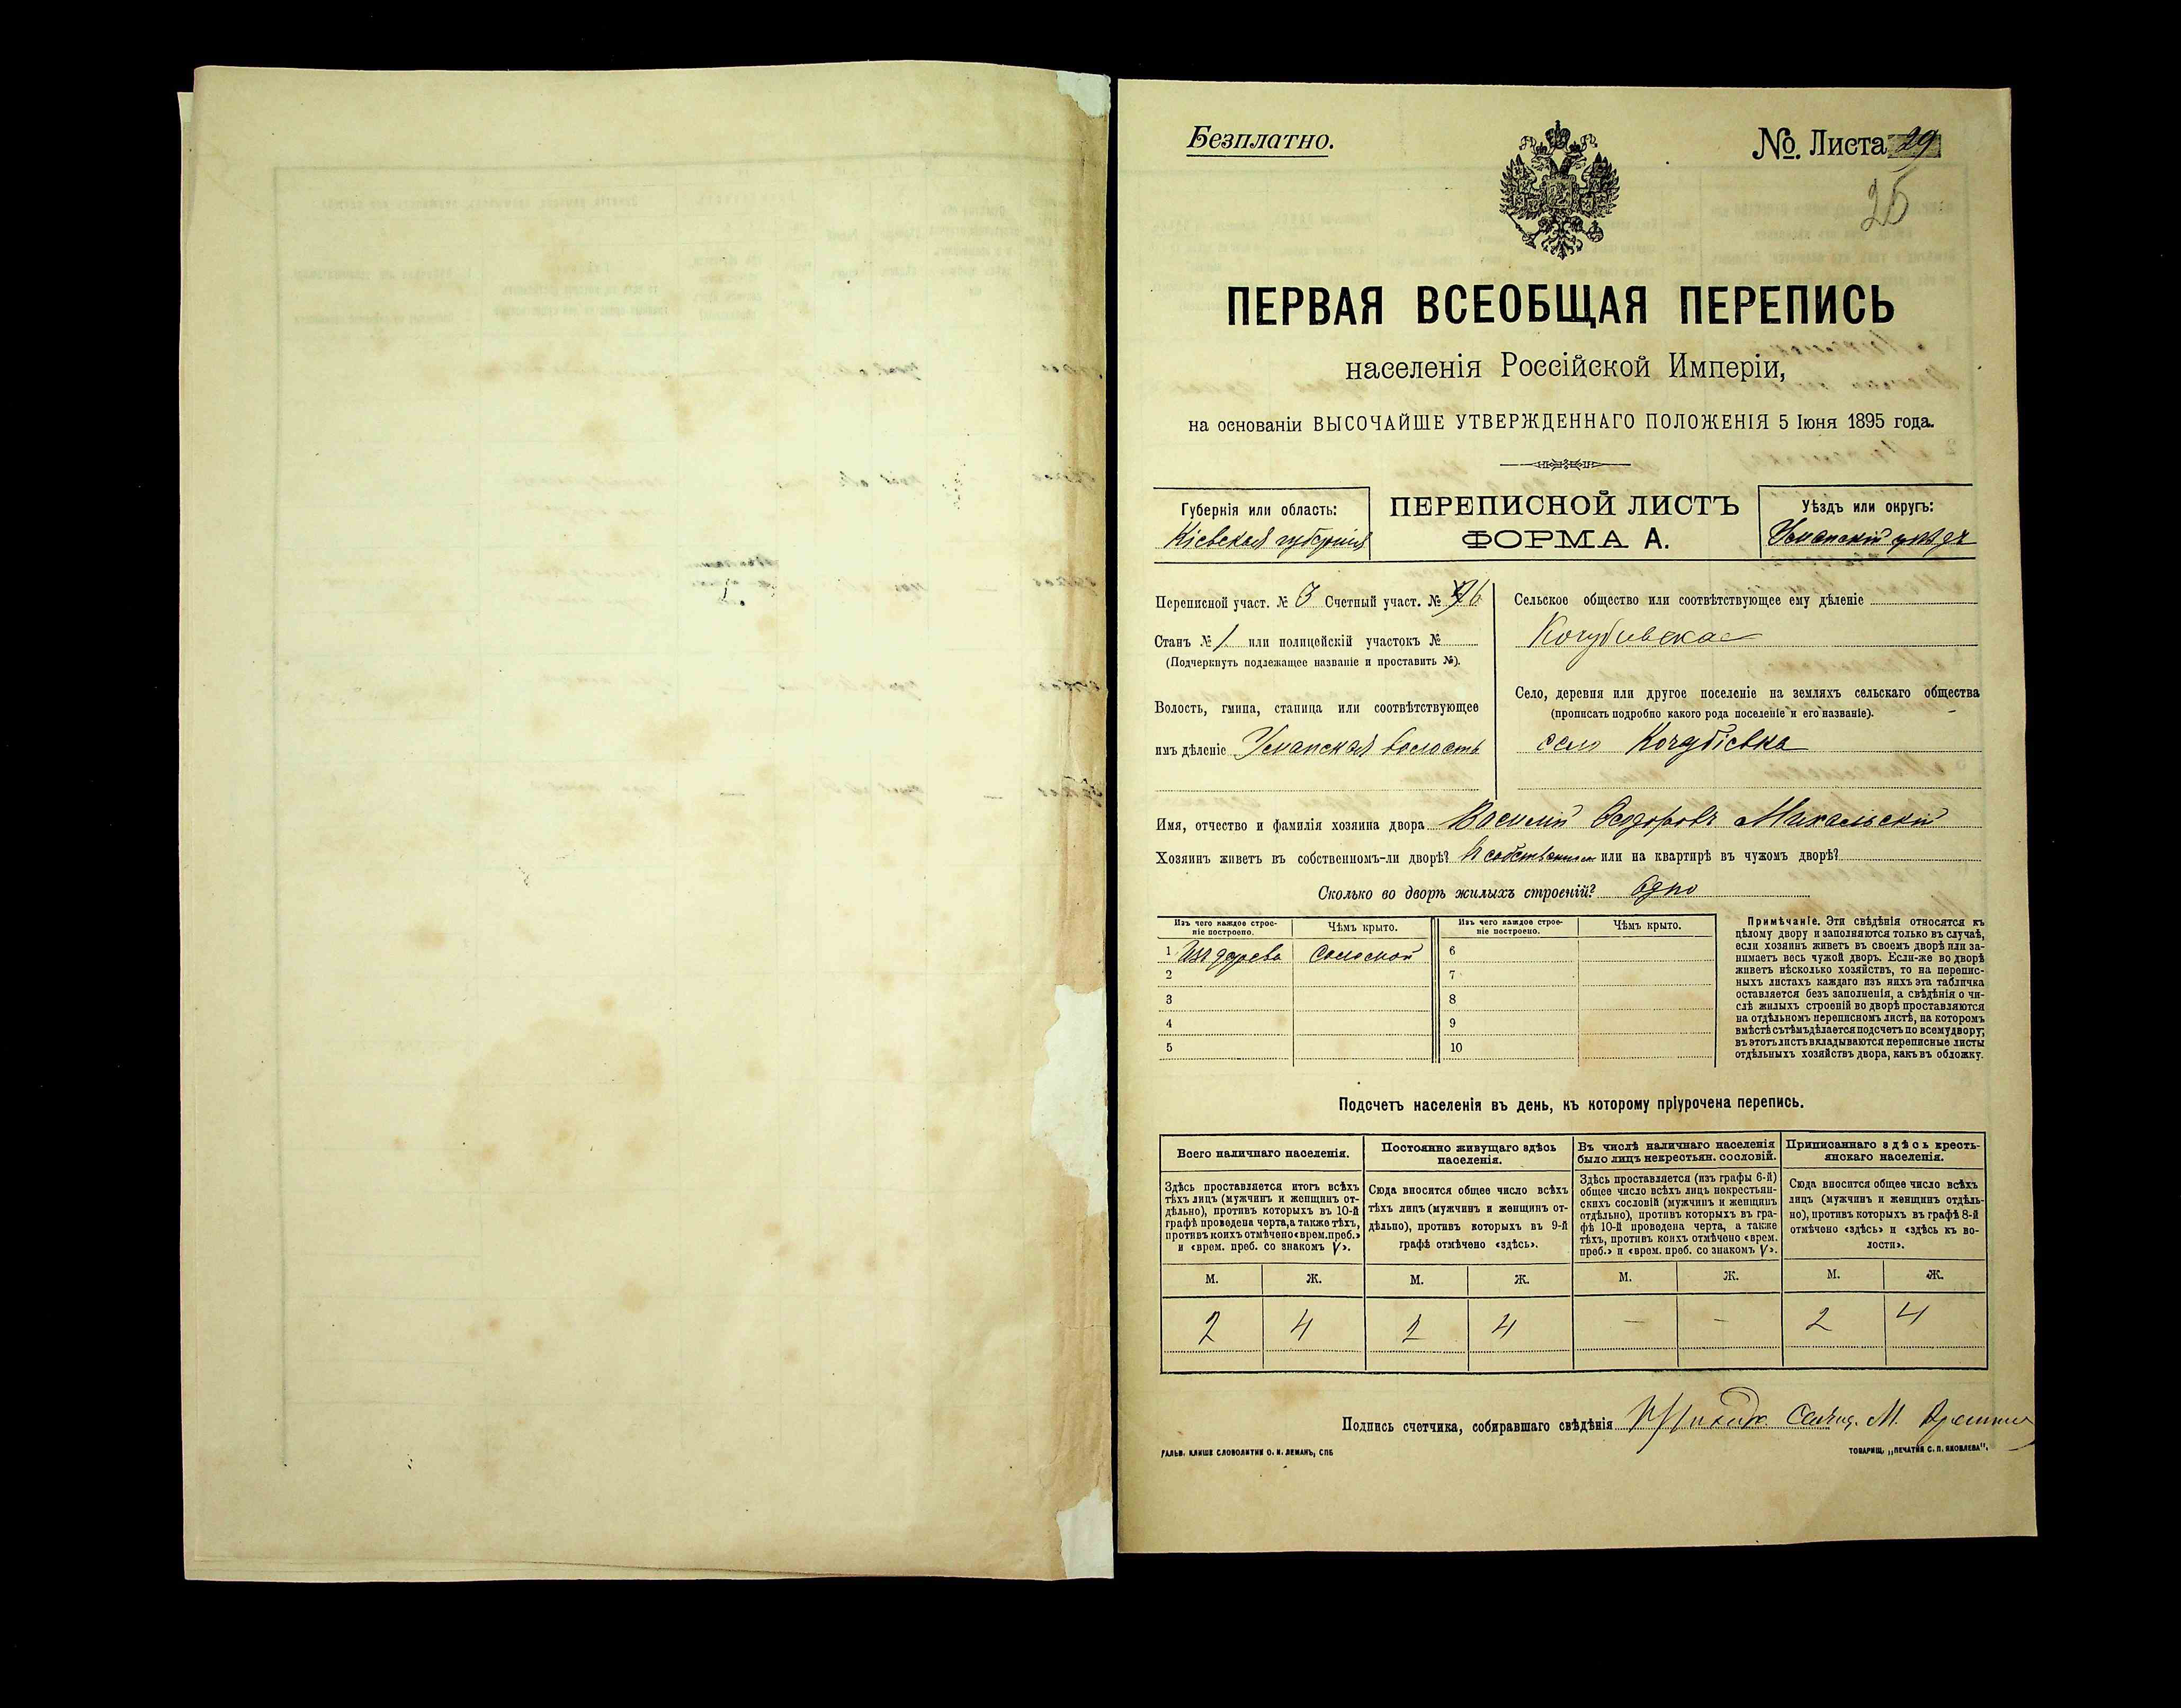 Безплатно.
№. Листа 29
25
ПЕРВАЯ ВСЕОБЩАЯ ПЕРЕПИСЬ
населенія Россійской Имперіи,
на основаніи ВЫСОЧАЙШЕ УТВЕРЖДЕННАГО ПОЛОЖЕНІЯ 5 Іюня 1895 года.
Губернія или область:
Кіевская губернія
ПЕРЕПИСНОЙ ЛИСТЪ
ФОРМА А.
Уѣздъ или округъ:
Уманскій уѣздъ
Переписной участ. № 3 Счетный участ. №
Станъ № 1 или полицейскій участокъ №
(Подчеркнуть подлежащее названіе и проставить №).
Волость, гмина, станица или соотвѣтствующее
имъ дѣленіе Уманская волость
Сельское общество или соотвѣтствующее ему дѣленіе
Кочубіевское
Село, деревня или другое поселеніе на земляхъ сельскаго общества
(прописать подробно какого рода поселеніе и его названіе).
село Кочубіевка
Имя, отчество и фамилія хозяина двора Василій Федоровъ Михальскій
Хозяинъ живетъ въ собственномъ-ли дворѣ? В собственном или на квартирѣ въ чужомъ дворѣ?
Сколько во дворѣ жилыхъ строеній? Одно
Изъ чего каждое строе-
ніе построено.
Чѣмъ крыто.
Изъ чего каждое строе-
ніе построено.
Чѣмъ крыто.
1 Изъ дерева Соломой 6
2 7
3 8
4 9
5 10
Примѣчаніе. Эти свѣдѣнія относятся къ
цѣлому двору и заполняются только въ случаѣ,
если хозяинъ живетъ въ своемъ дворѣ или за-
нимаетъ весь чужой дворъ. Если-же во дворѣ
живетъ нѣсколько хозяйствъ, то на перепис-
ныхъ листахъ каждаго изъ нихъ эта табличка
оставляется безъ заполненія, а свѣдѣнія о чи-
слѣ жилыхъ строеній во дворѣ проставляются
на отдѣльномъ переписномъ листѣ, на которомъ
вмѣстѣ съ тѣмъ дѣлается подсчетъ по всему двору;
въ этотъ листъ вкладываются переписные листы
отдѣльныхъ хозяйствъ двора, какъ въ обложку.
Подсчетъ населенія въ день, къ которому пріурочена перепись.
Всего наличнаго населенія.
Здѣсь проставляется итогъ всѣхъ
тѣхъ лицъ (мужчинъ и женщинъ от-
дѣльно), противъ которыхъ въ 10-й
графѣ проведена черта, а также тѣхъ,
противъ коихъ отмѣчено «врем. преб.»
и «врем. преб. со знакомъ V».
Постоянно живущаго здѣсь
населенія.
Сюда вносится общее число всѣхъ
тѣхъ лицъ (мужчинъ и женщинъ от-
дѣльно), противъ которыхъ въ 9-й
графѣ отмѣчено «здѣсь».
Въ числѣ наличнаго населенія
было лицъ некрестьян. сословій.
Здѣсь проставляется (изъ графы 6-й)
общее число всѣхъ лицъ некрестьян-
скихъ сословій (мужчинъ и женщинъ
отдѣльно), противъ которыхъ въ гра-
фѣ 10-й проведена черта, а также
тѣхъ, противъ коихъ отмѣчено «врем.
преб.» и «врем. преб. со знакомъ V».
Приписаннаго здѣсь кресть-
янскаго населенія.
Сюда вносится общее число всѣхъ
лицъ (мужчинъ и женщинъ отдѣль-
но), противъ которыхъ въ графѣ 8-й
отмѣчено «здѣсь» и «здѣсь къ во-
лости».
М. Ж. М. Ж. М. Ж. М. Ж.
2 4 2 4 — — 2 4
Подпись счетчика, собиравшаго свѣдѣнія
ГАЛЬВ. КЛИШЕ СЛОВОЛИТНИ О. И. ЛЕМАНЪ, СПБ
ТОВАРИЩ. „ПЕЧАТНЯ С. П. ЯКОВЛЕВА".